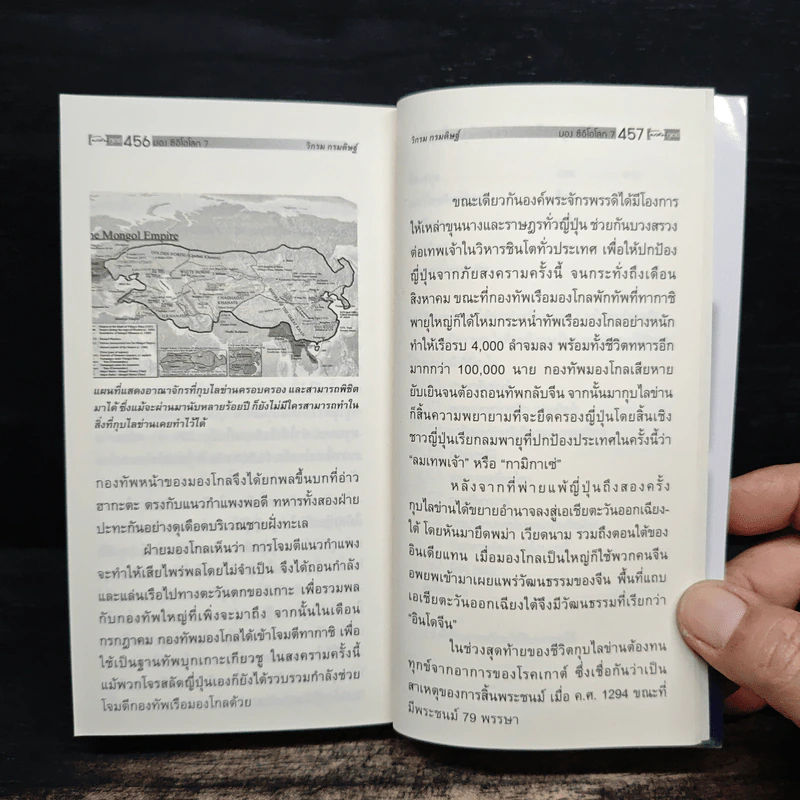 456 มอง ซีอีโอโลก 7
วิกรม กรมดิษฐ์
he Mongol Empire
แผนที่แสดงอาณาจักรที่กุบไลข่านครอบครอง และสามารถพิชิต
มาได้ ซึ่งแม้จะผ่านมานับหลายร้อยปี ก็ยังไม่มีใครสามารถทำใน
สิ่งที่กุบไลข่านเคยทำไว้ได้
กองทัพหน้าของมองโกลจึงได้ยกพลขึ้นบกที่อ่าว
ฮากะตะ ตรงกับแนวกำแพงพอดี ทหารทั้งสองฝ่าย
ปะทะกันอย่างดุเดือดบริเวณชายฝั่งทะเล
ฝ่ายมองโกลเห็นว่า การโจมตีแนวกำแพง
จะทำให้เสียไพร่พลโดยไม่จำเป็น จึงได้ถอนกำลัง
และแล่นเรือไปทางตะวันตกของเกาะ เพื่อรวมพล
กับกองทัพใหญ่ที่เพิ่งจะมาถึง จากนั้นในเดือน
กรกฎาคม กองทัพมองโกลได้เข้าโจมตีทากาชิ เพื่อ
ใช้เป็นฐานทัพบุกเกาะเกียวชู ในสงครามครั้งนี้
แม้พวกโจรสลัดญี่ปุ่นเองก็ยังได้รวบรวมกำลังช่วย
โจมตีกองทัพเรือมองโกลด้วย
วิกรม กรมดิษฐ์
มอง ซีอีโอโลก 7 457
ขณะเดียวกันองค์พระจักรพรรดิได้มีโองการ
ให้เหล่าขุนนางและราษฎรทั่วญี่ปุ่น ช่วยกันบวงสรวง
ต่อเทพเจ้าในวิหารชินโตทั่วประเทศ เพื่อให้ปกป้อง
ญี่ปุ่นจากภัยสงครามครั้งนี้ จนกระทั่งถึงเดือน
สิงหาคม ขณะที่กองทัพเรือมองโกลพักทัพที่ทากาชิ
พายุใหญ่ก็ได้โหมกระหน่ำทัพเรือมองโกลอย่างหนัก
ทำให้เรือรบ 4,000 ลำจมลง พร้อมทั้งชีวิตทหารอีก
มากกว่า 100,000 นาย กองทัพมองโกลเสียหาย
ยับเยินจนต้องถอนทัพกลับจีน จากนั้นมากุบไลข่าน
ก็สิ้นความพยายามที่จะยึดครองญี่ปุ่นโดยสิ้นเชิง
ชาวญี่ปุ่นเรียกลมพายุที่ปกป้องประเทศในครั้งนี้ว่า
"ลมเทพเจ้า" หรือ "กามิกาเซ่"
หลังจากที่พ่ายแพ้ญี่ปุ่นถึงสองครั้ง
กุบไลข่านได้ขยายอำนาจลงสู่เอเชียตะวันออกเฉียง-
ใต้ โดยหันมายึดพม่า เวียดนาม รวมถึงตอนใต้ของ
อินเดียแทน เมื่อมองโกลเป็นใหญ่ก็ใช้พวกคนจีน
อพยพเข้ามาเผยแพร่วัฒนธรรมของจีน พื้นที่แถบ
เอเชียตะวันออกเฉียงใต้จึงมีวัฒนธรรมที่เรียกว่า
"อินโดจีน"
ในช่วงสุดท้ายของชีวิตกุบไลข่านต้องทน
ทุกข์จากอาการของโรคเกาต์ ซึ่งเชื่อกันว่าเป็น
สาเหตุของการสิ้นพระชนม์ เมื่อ ค.ศ. 1294 ขณะที่
มีพระชนม์ 79 พรรษา